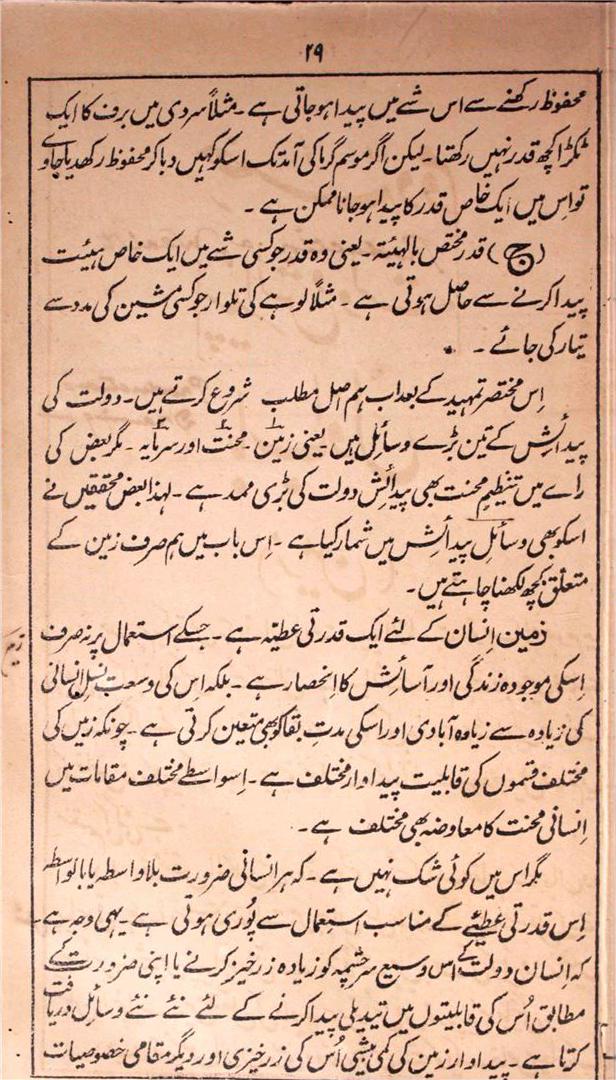 ۲۹
محفوظ رکھنے سے اس شے میں پیدا ہوجاتی ہے ۔ مثلاً سردی میں برف کا ایک
ٹکڑا کچھ قدر نہیں رکھتا ۔ لیکن اگر موسم گرما کی آمد تک اسکو کہیں دبا کر محفوظ رکھدیا جاوے
تو اِس میں ایک خاص قدر کا پیدا ہوجانا ممکن ہے ۔
(ج) قدر مختص بالہیئتہ ۔ یعنی وہ قدر جو کسی شے میں ایک خاص ہیئت
پیدا کرنے سے حاصل ہوتی ہے ۔ مثلاً لوہے کی تلوار جو کسی مشین کی مدد سے
تیار کی جائے ۔
اِس مختصر تمہید کے بعد اب ہم اصل مطلب شروع کرتے ہیں ۔ دولت کی
پیدائش کے تین بڑے وسائل ہیں یعنی زمین ۔ محنت اور سرمایہ ۔ مگر بعض کی
رائے میں تنظیمِ محنت بھی پیدائشِ دولت کی بڑی ممد ہے ۔ لہذا بعض محققین نے
اسکو بھی وسائلِ پیدائش میں شمار کیا ہے ۔ اِس باب میں ہم صرف زمین کے
متعلق کچھ لکھنا چاہتے ہیں ۔
زمین اِنسان کے لئے ایک قدرتی عطیّہ ہے ۔ جسکے استعمال پر نہ صرف
اِسکی موجودہ زندگی اور آسائش کا اِنحصار ہے ۔ بلکہ اِس کی وسعت نسلِ اِنسانی
کی زیادہ سے زیادہ آبادی اور اسکی مدتِ بقا کو بھی متعین کرتی ہے ۔ چونکہ زمین کی
مختلف قسموں کی قابلیت پیداوار مختلف ہے ۔ اِسواسطے مختلف مقامات میں
اِنسانی محنت کا معاوضہ بھی مختلف ہے ۔
مگر اس میں کوئی شک نہیں ہے ۔ کہ ہر انسانی ضرورت بلاواسطہ یا بالواسطہ
اِس قدرتی عطیّے کے مناسب استعمال سے پُوری ہوتی ہے ۔ یہی وجہ ہے
کہ اِنسان دولت کے اس وسیع سرچشمہ کو زیادہ زرخیز کرنے یا اپنی ضرورت کے
مطابق اُس کی قابلیتوں میں تبدیلی پیدا کرنے کے لئے نئے نئے وسائل دریافت
کرتا ہے ۔ پیداوار زمین کی کمی بیشی اُس کی زرخیزی اور دیگر مقامی خصوصیات